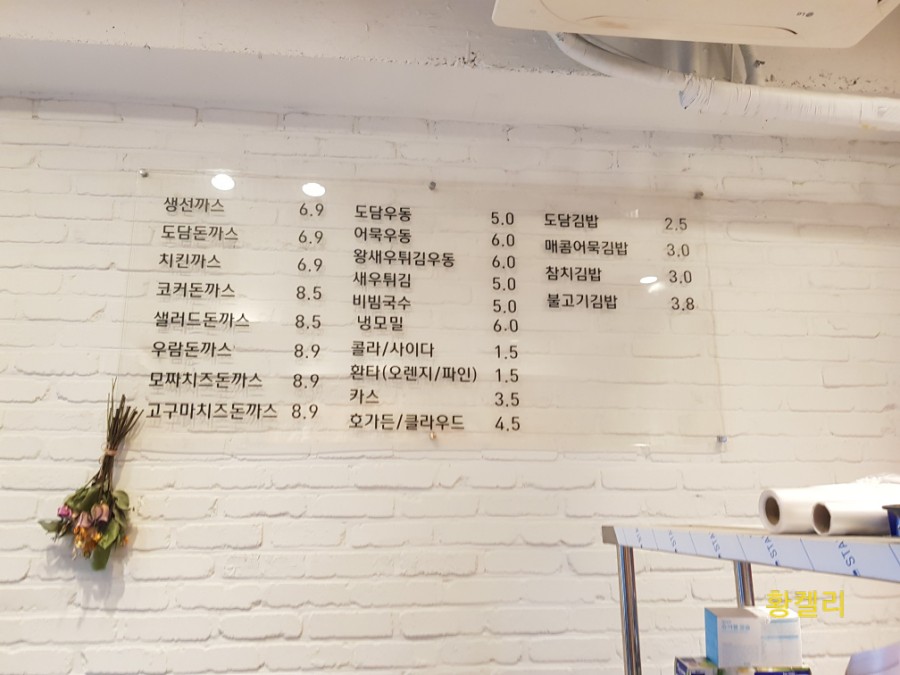 생선까스 6.9
도담돈까스 6.9
치킨까스 6.9
코커돈까스 8.5
샐러드돈까스 8.5
우람돈까스 8.9
모짜치즈돈까스 8.9
고구마치즈돈까스 8.9
도담우동 5.0
어묵우동 6.0
왕새우튀김우동 6.0
새우튀김 5.0
비빔국수 5.0
냉모밀 6.0
콜라/사이다 1.5
환타(오렌지/파인) 1.5
카스 3.5
호가든/클라우드 4.5
도담김밥 2.5
매콤어묵김밥 3.0
참치김밥 3.0
불고기김밥 3.8
STA
STA
STA
황켈리